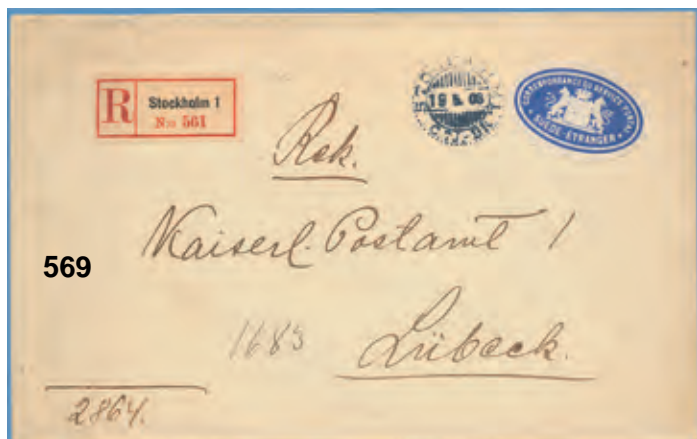 R Stockholm 1
No 561
19 5. 06
CORRESPONDANCE DU SERVICE POSTAL
SUÈDE-ÉTRANGER
Rek.
Kaiserl. Postamt 1
569
1683
Lübeck.
2864.